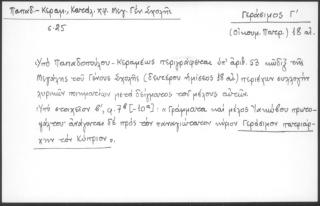 Παπαδ.-Κεραμ., Κατάλ. χφ. Μεγ. Γέν. Σχολῆς
Γεράσιμος Γ΄
σ. 25
(Οἰκουμ. Πατρ.) 18 αἰ.
Ὑπὸ Παπαδοπούλου-Κεραμέως περιγράφεται ὑπ' ἀριθ. 53 κῶδιξ τῆς
Μεγάλης τοῦ Γένους Σχολῆς (δευτέρου ἡμίσεος 18 αἰ.) περιέχων συλλογὴν
λυρικῶν ποιημάτων μετὰ δείγματος τοῦ μέλους αὐτῶν.
Ὑπὸ στοιχεῖον β΄, φ. 7β [-10α]: «Γράμματα καὶ μέλος Ἰακώβου πρωτο-
ψάλτου· ἀνάγονται δὲ πρὸς τὸν παναγιώτατον κύριον Γεράσιμον πατριάρ-
χην τὸν Κύπριον».